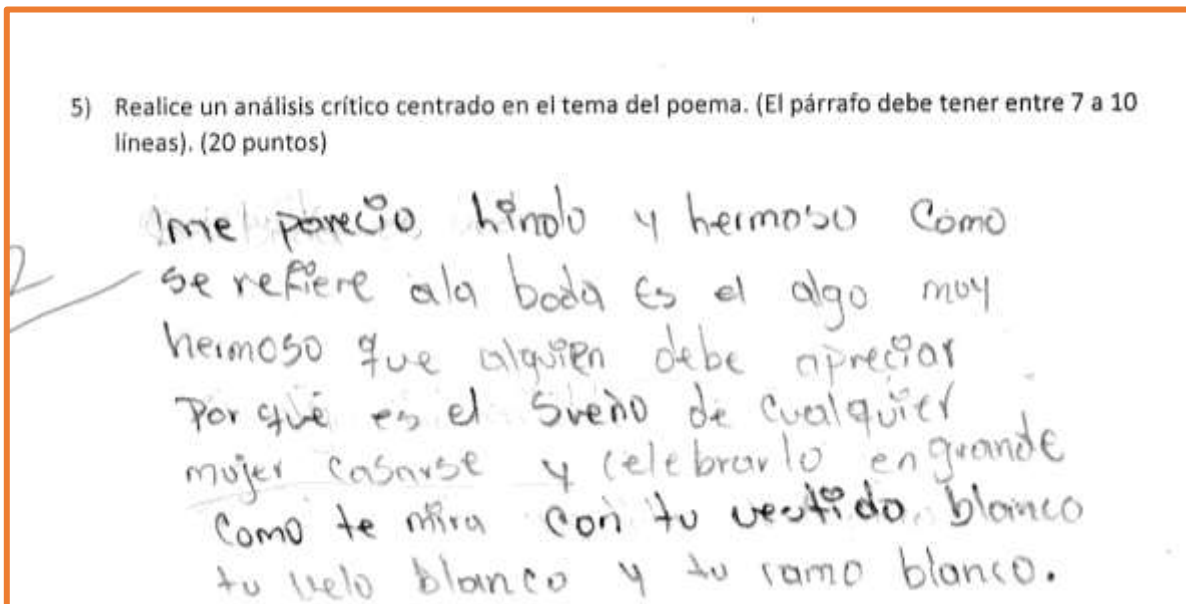 5) Realice un análisis crítico centrado en el tema del poema. (El párrafo debe tener entre 7 a 10
líneas). (20 puntos)
me parecio hindo y hermoso como
se refiere ala boda es el algo muy
hermoso que alguien debe apreciar
Por qué es el sueño de cualquier
mujer casarse y celebrarlo en grande
Como te mira con tu vestido blanco
tu velo blanco y tu ramo blanco.